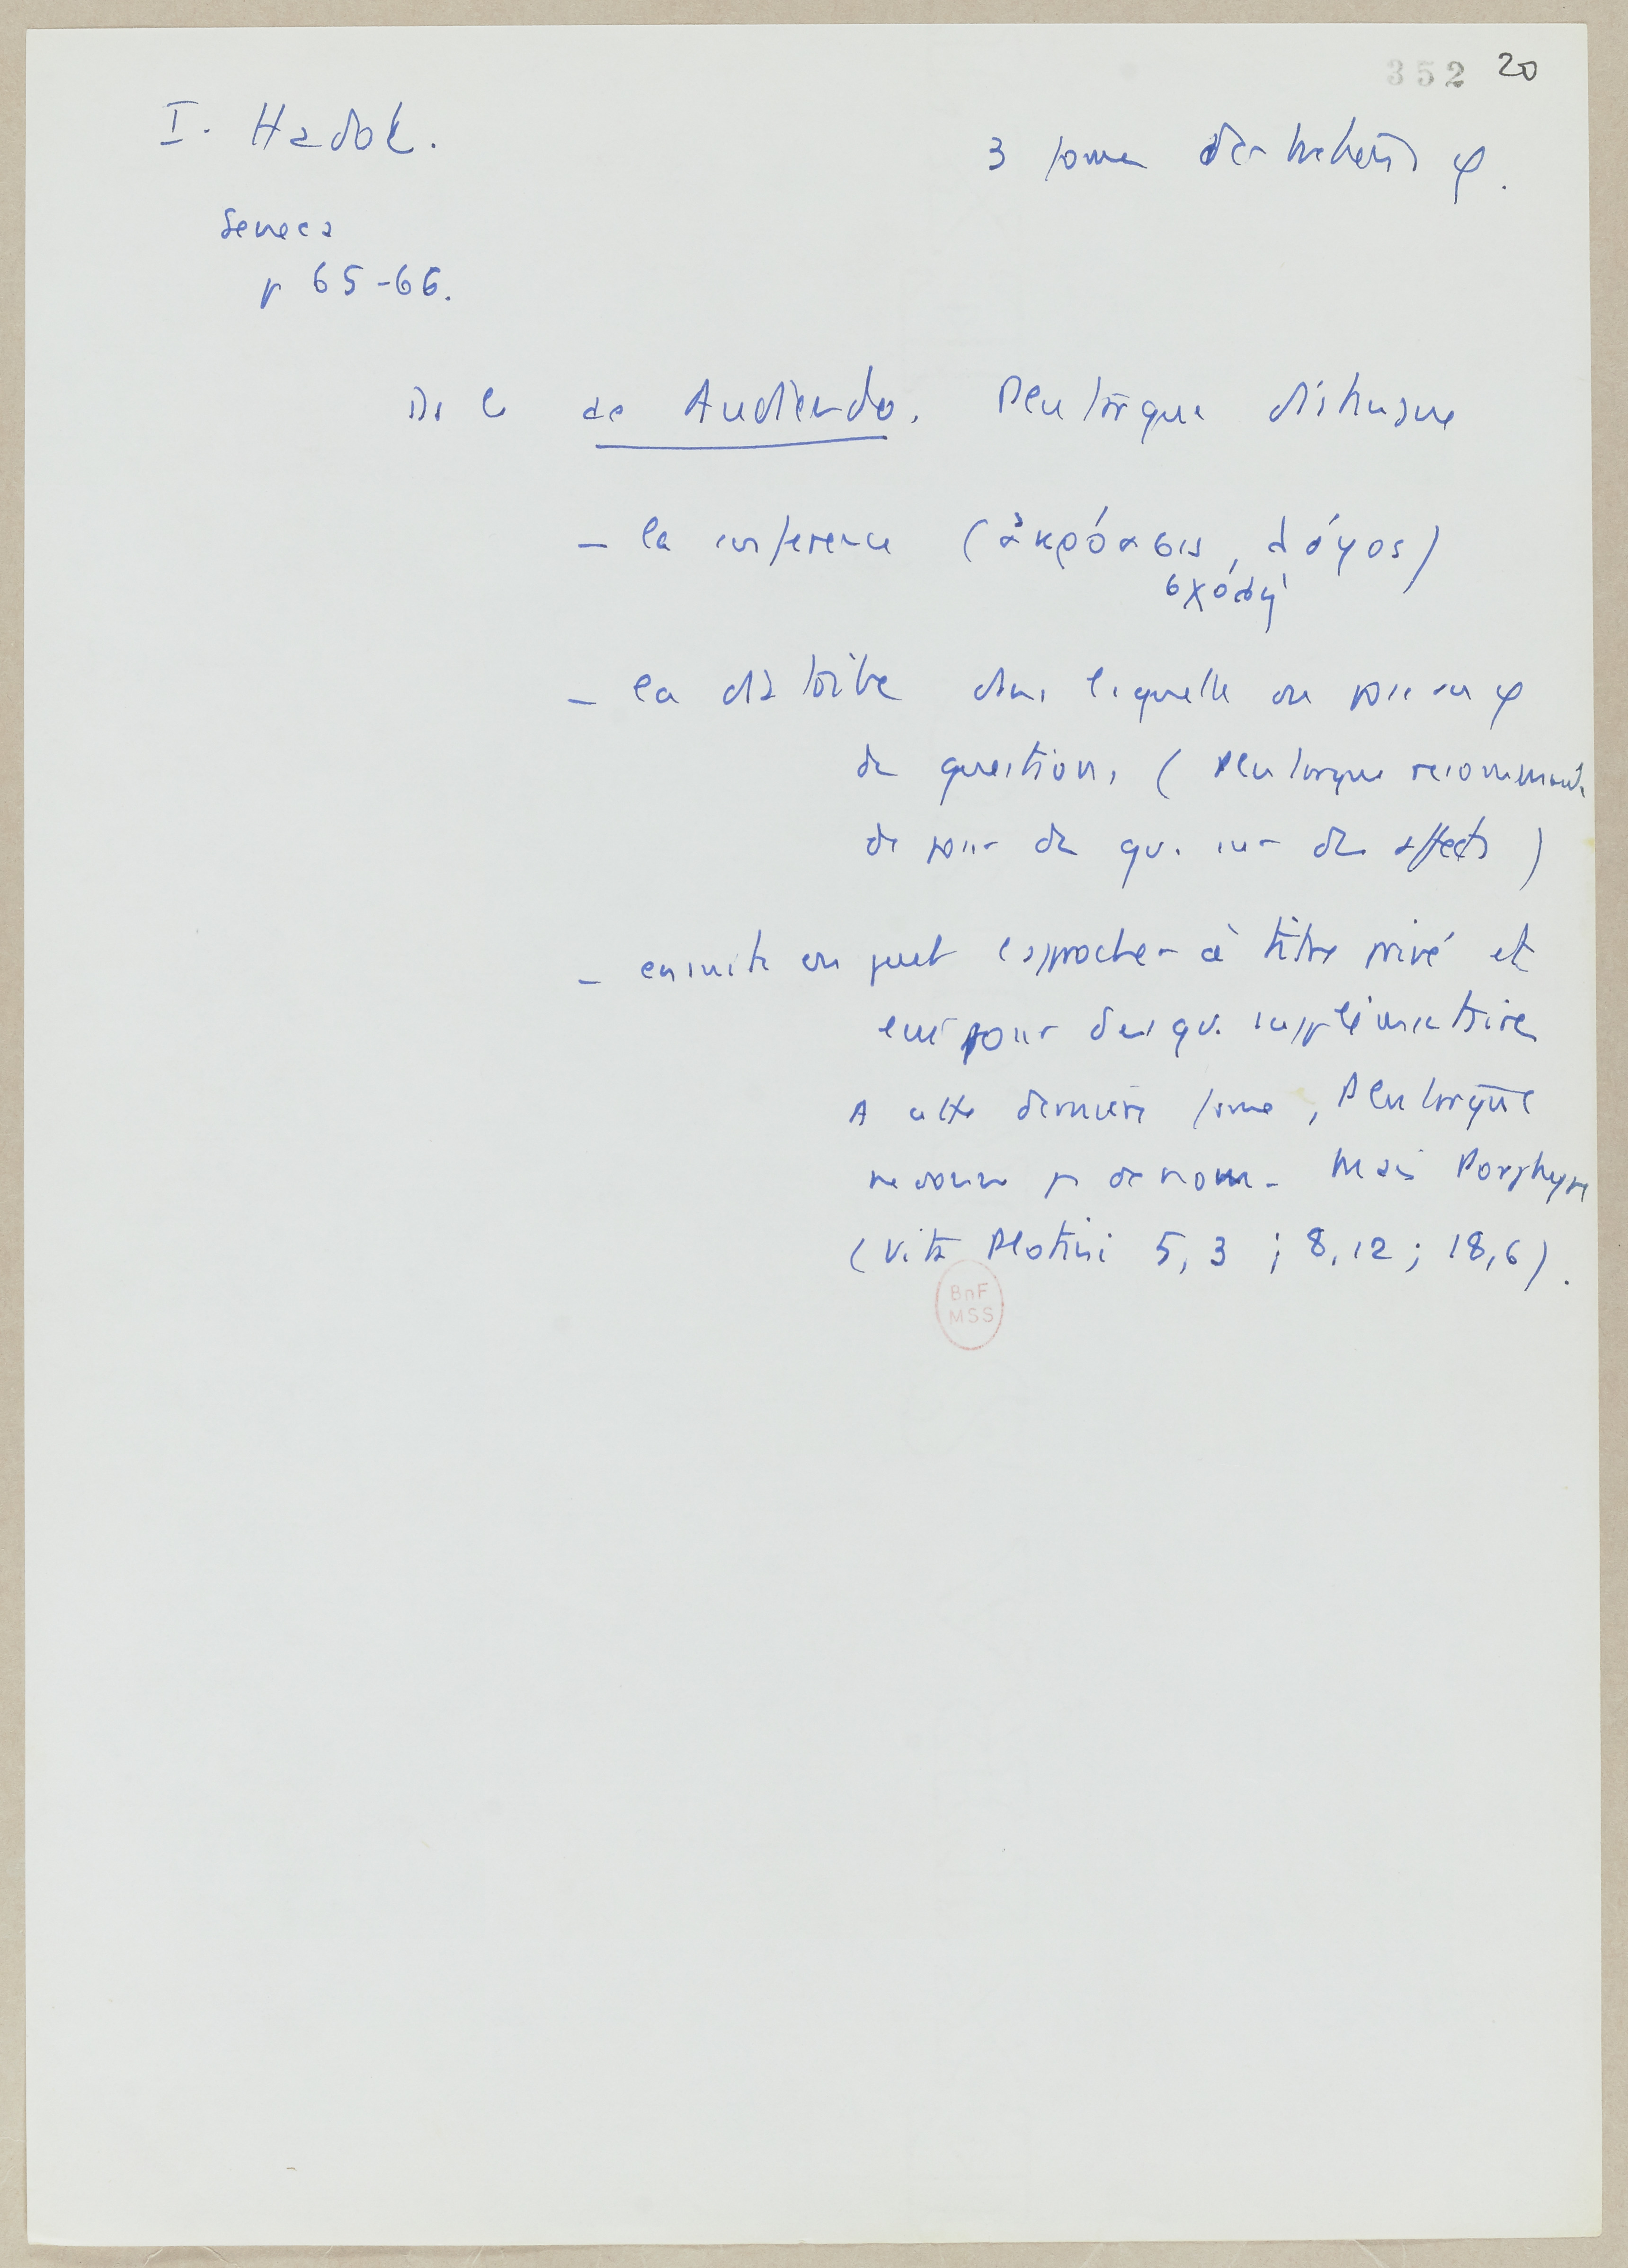 352 20
I. Hadot.
3 formes d'entretiens φ.
Seneca
p 65-66.
Ds le de Audiendo, Plutarque distingue
– la conférence (ἀκρόασις, λόγος)
σχολή
– la diatribe dans laquelle on pose au φ
des questions (Plutarque recommande
de poser des qu. sur des affects)
– ensuite on peut l'approcher à titre privé et
lui poser des qu. supplémentaires
A cette dernière forme, Plutarque
ne donne pas de nom. Mais Porphyre
(Vita Plotini 5,3 ; 8,12 ; 18,6).
BnF
MSS